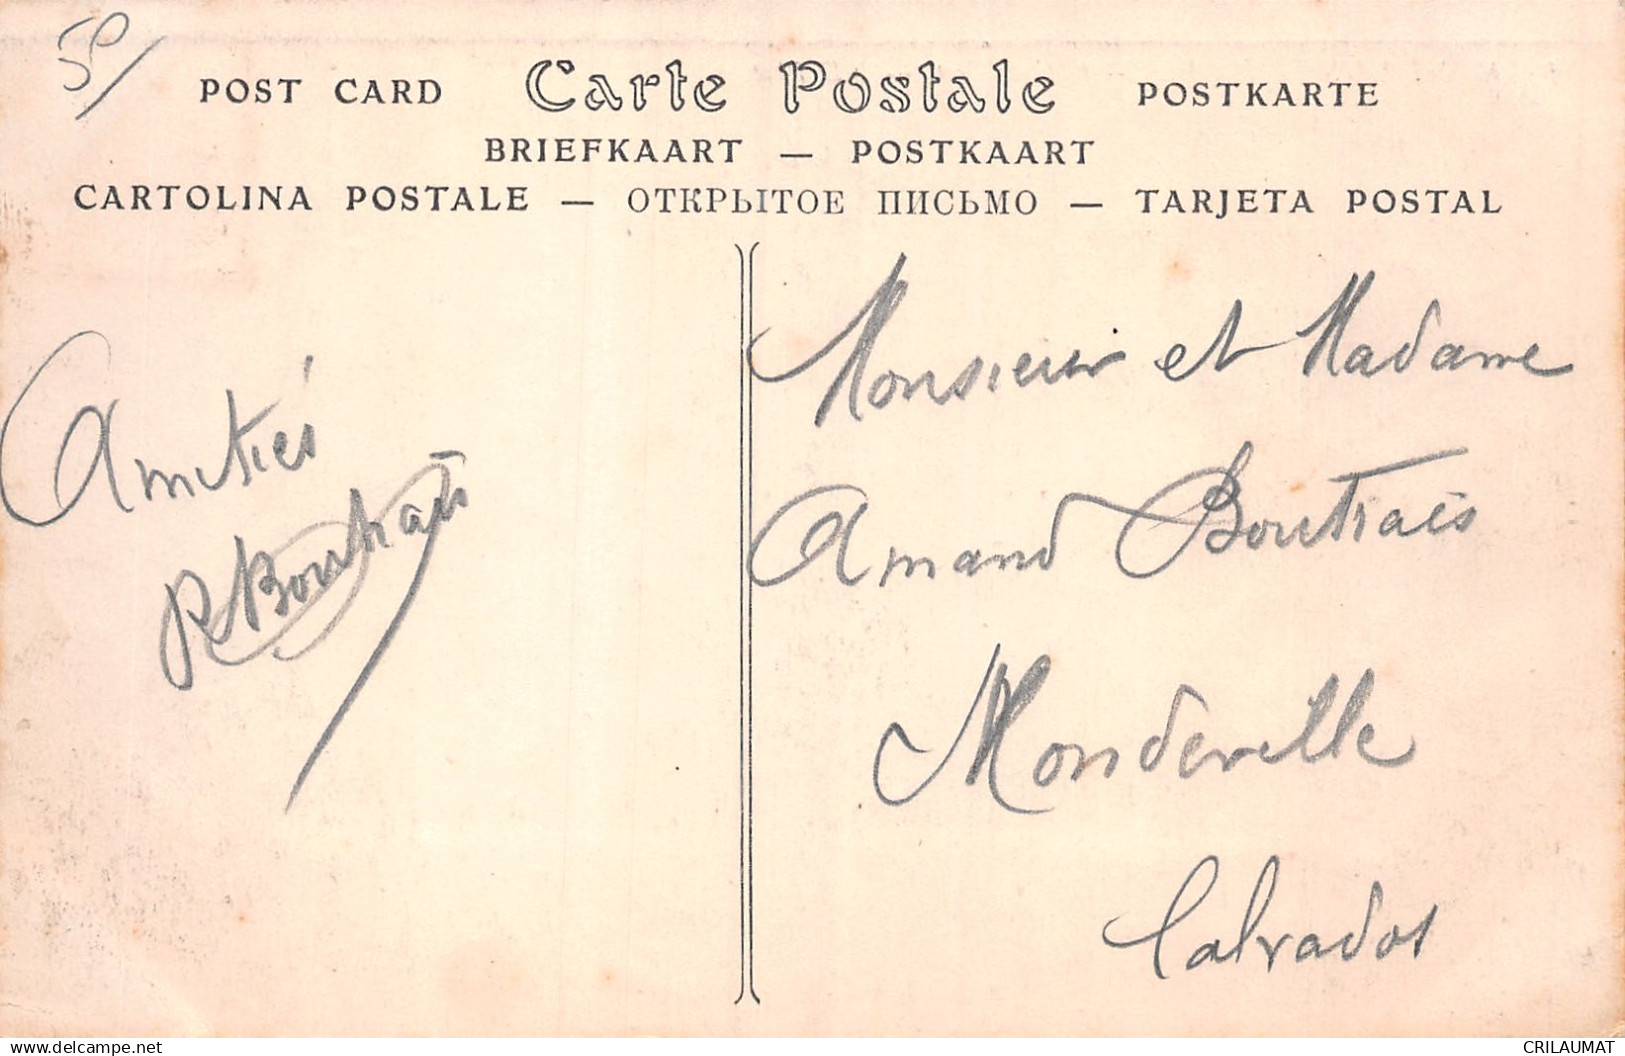 50/
POST CARD Carte Postale POSTKARTE
BRIEFKAART — POSTKAART
CARTOLINA POSTALE — ОТКРЫТОЕ ПИСЬМО — TARJETA POSTAL
Amitiés
R Boutrais
Monsieur et Madame
Amand Boutrais
Mondeville
Calvados
www.delcampe.net
CRILAUMAT